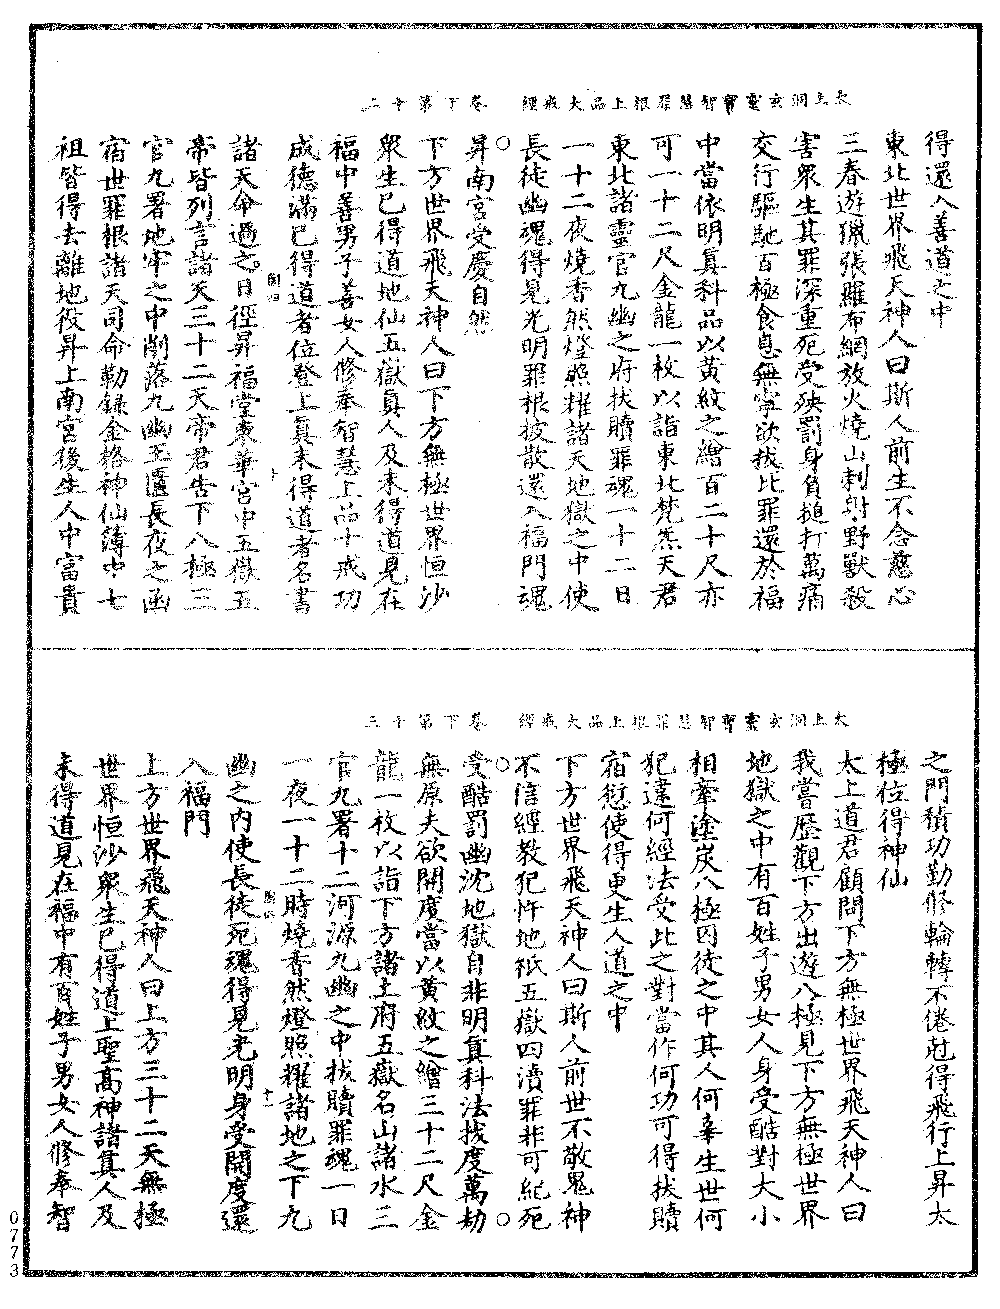 太上洞玄靈寶智慧罪根上品大戒經　卷下第十二
得還入善道之中
東北世界飛天神人曰斯人前生不念慈心
三春遊獵張羅布網放火燒山刺射野獸殺
害衆生其罪深重死受殃罰身負搥打萬痛
交行驅馳百極食息無寧欲拔此罪還於福
中當依明真科品以黃紋之繒百二十尺亦
可一十二尺金龍一枚以詣東北梵炁天君
東北諸靈官九幽之府扶贖罪魂一十二日
一十二夜燒香然燈照耀諸天地獄之中使
長徒幽魂得見光明罪根披散還入福門魂
昇南宮受慶自然
下方世界飛天神人曰下方無極世界恒沙
衆生已得道地仙五嶽真人及未得道見在
福中善男子善女人修奉智慧上品十戒功
成德滿已得道者位登上真未得道者名書
諸天命過之日徑昇福堂東華宮中五嶽五
帝皆列言諸天三十二天帝君告下八極三
官九署地牢之中削落九幽玉匱長夜之函
宿世罪根諸天司命勒錄金格神仙簿中七
祖皆得去離地役昇上南宮後生人中富貴
太上洞玄靈寶智慧罪根上品大戒經　卷下第十三
之門積功勤修輪轉不倦尅得飛行上昇太
極位得神仙
太上道君顧問下方無極世界飛天神人曰
我嘗歷觀下方出遊八極見下方無極世界
地獄之中有百姓子男女人身受酷對大小
相牽塗炭八極囚徒之中其人何辜生世何
犯違何經法受此之對當作何功可得拔贖
宿愆使得更生人道之中
下方世界飛天神人曰斯人前世不敬鬼神
不信經教犯忤地祇五嶽四瀆罪非可紀死
受酷罰幽沈地獄自非明真科法拔度萬劫
無原夫欲開度當以黃紋之繒三十二尺金
龍一枚以詣下方諸土府五嶽名山諸水三
官九署十二河源九幽之中拔贖罪魂一日
一夜一十二時燒香然燈照耀諸地之下九
幽之内使長徒死魂得見光明身受開度還
入福門
上方世界飛天神人曰上方三十二天無極
世界恒沙衆生已得道上聖高神諸真人及
未得道見在福中有百姓子男女人修奉智
0773